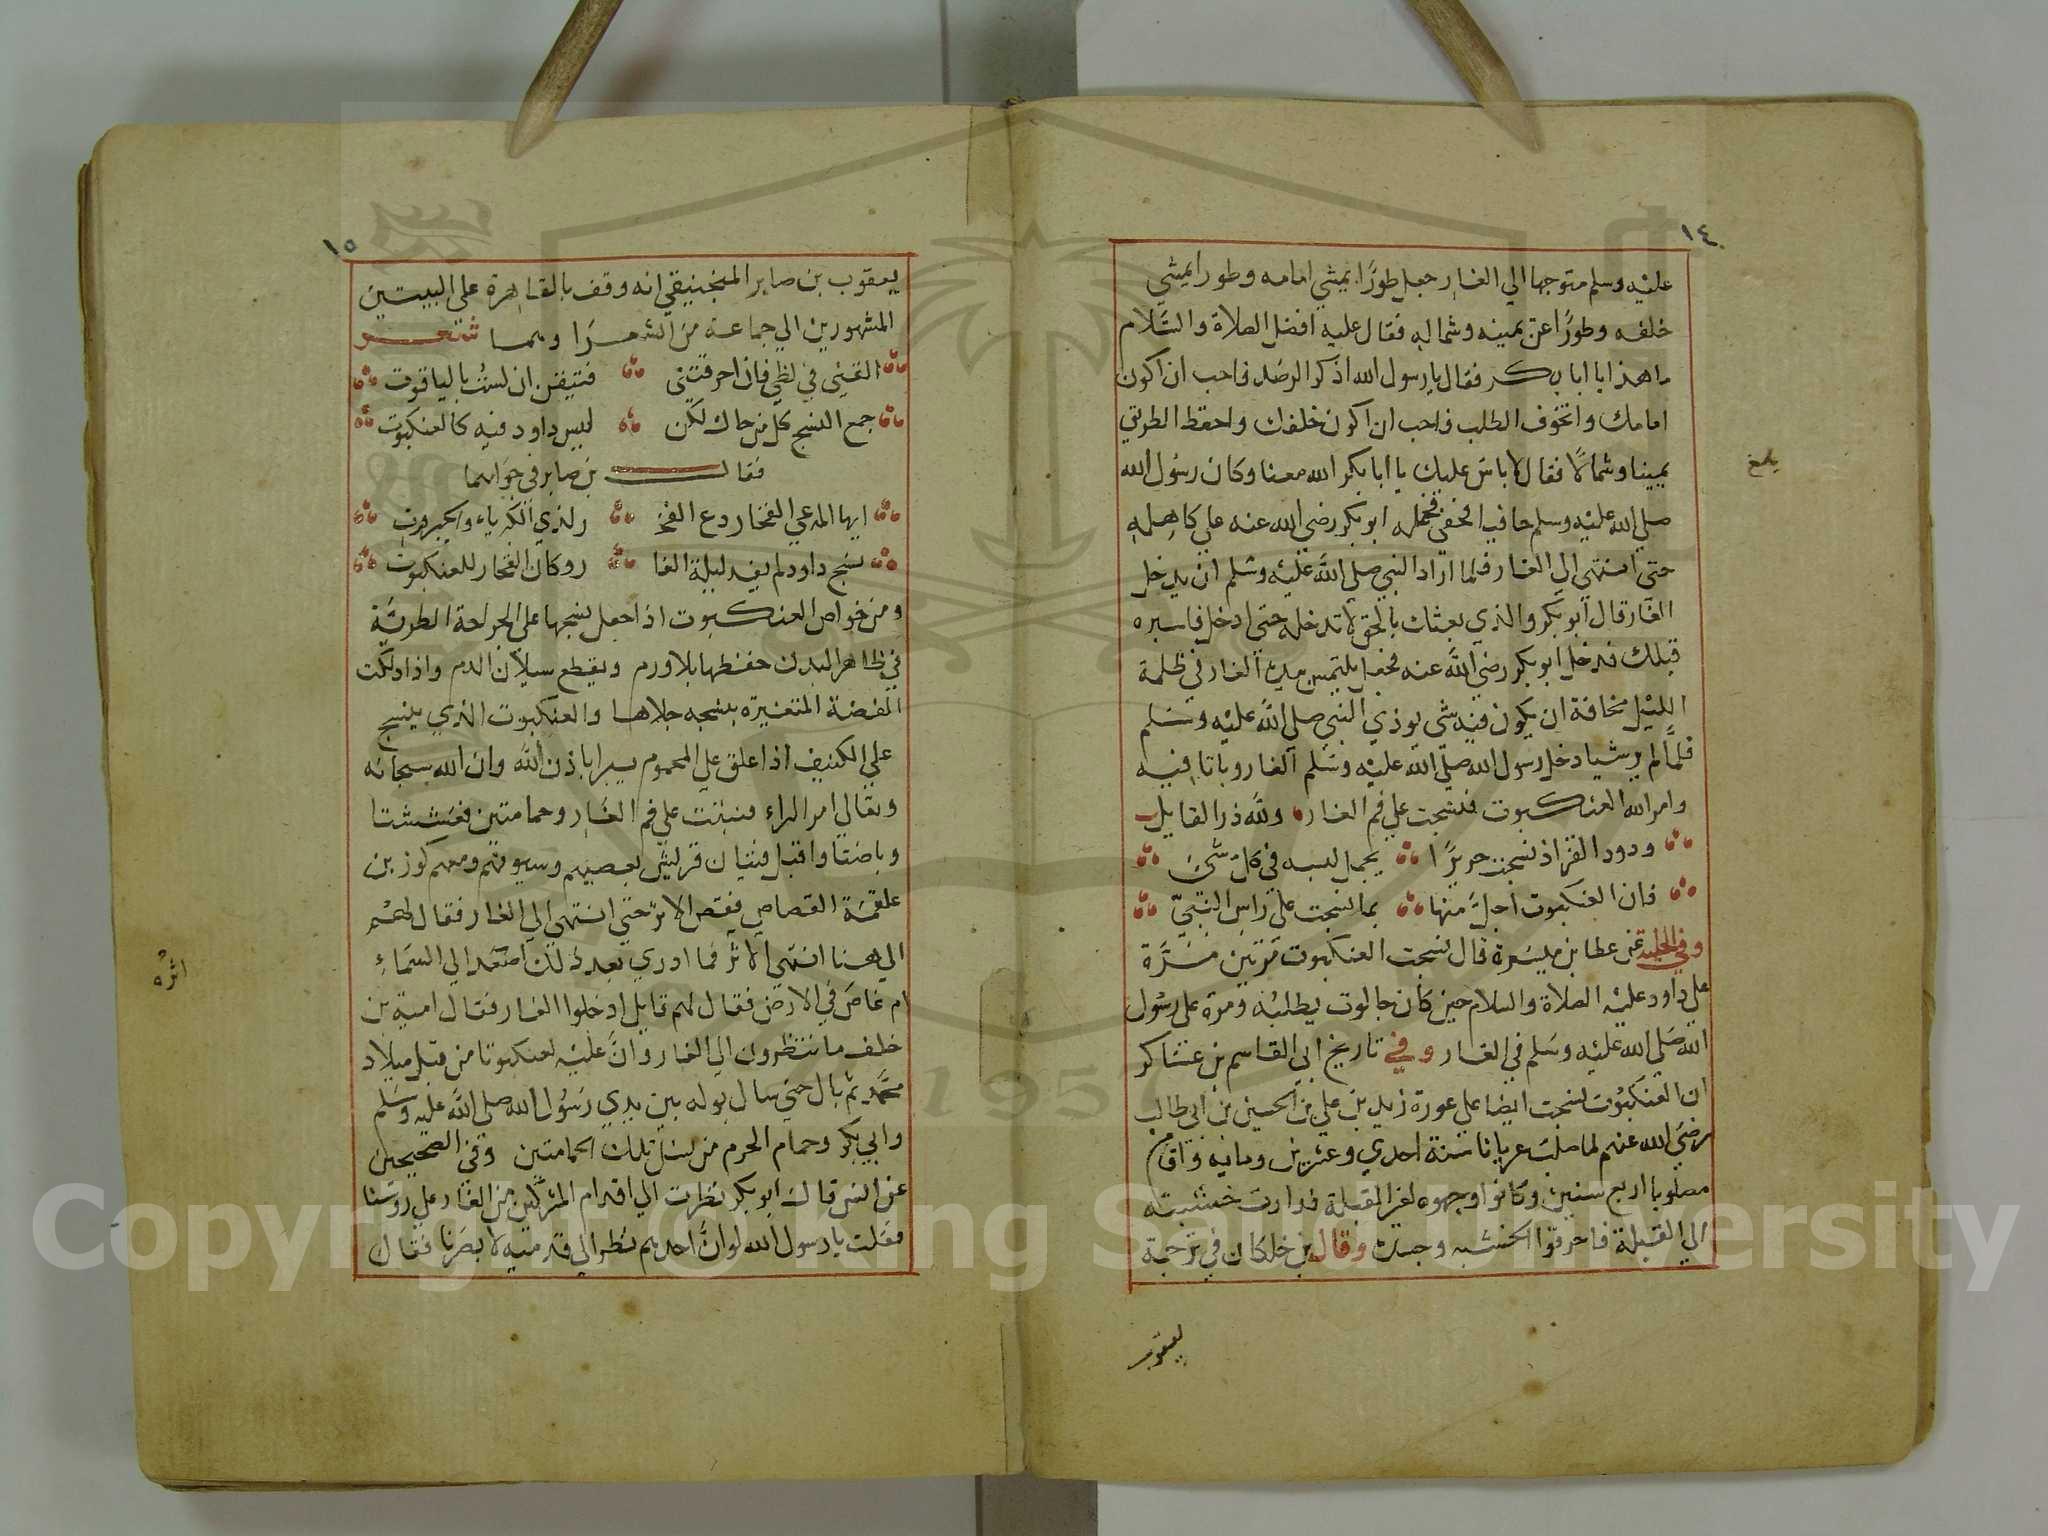 ١٤
عليه وسلم متوجها الي الغار جعل طورًا يمشي امامه وطورا يمشي
خلفه وطورًا عن يمينه وشماله فقال عليه افضل الصلاة والسَّلام
ما هذا يا ابا بكر فقال يا رسول الله اذكر الرصد فاحب ان اكون
امامك واتخوف الطلب فاحب ان اكون خلفك واحفظ الطريق
يمينا وشمالًا فقال لا باس عليك يا ابا بكر الله معنا وكان رسول الله
صلي الله عليه وسلم حافيا فحفي فحمله ابو بكر رضي الله عنه علي كاهله
حتي انتهي الي الغار فلما اراد النبي صلي الله عليه وسلم ان يدخل
الغار قال ابو بكر والذي بعثك بالحق لا تدخله حتي ادخل فاسبره
قبلك فدخل ابو بكر رضي الله عنه فجعل يلتمس بيده الغار في ظلمة
الليل مخافة ان يكون فيه شي يوذي النبي صلي الله عليه وسلم
فلما لم ير شيا دخل رسول الله صلي الله عليه وسلم الغار وباتا فيه
وامر الله العنكبوت فنسجت علي فم الغار ولله در القايل
ودود القز اذ نسجت حريرًا يجمل لبسه في كل شي
فان العنكبوت اجلّ منها بما نسجت علي راس النبيّ
وفي الحلية عن عطا بن ميسرة قال نسجت العنكبوت مرتين مرة
علي داود عليه الصلاة والسلام حين كان جالوت يطلبه ومرة علي رسول
الله صلي الله عليه وسلم في الغار وفي تاريخ ابي القاسم بن عساكر
ان العنكبوت نسجت ايضا علي عورة زيد بن علي بن الحسين بن ابي طالب
رضي الله عنهم لما صلب عريانا سنة احدي وعشرين ومايه واقام
مصلوبا اربع سنين وكانوا وجهوه لغير القبلة فدارت خشبته
الي القبلة فاحرقوا الخشبه وجسده وقال بن خلكان في ترجمة
يعقوب
بلغ
١٥
يعقوب بن صابر المنجنيقي انه وقف بالقاهرة علي البيتين
المشهورين الي جماعة من الشعرا وهما شعر
القني في لظي فان احرقتني فتيقن ان لست بالياقوت
جمع النسج كل من حاك لكن ليس داود فيه كالعنكبوت
فقال بن صابر في جوابهما
ايها المدعي الفخار دع الفخ ر لذي الكبرياء والجبروت
نسج داود لم يفد ليلة الغا ر وكان الفخار للعنكبوت
ومن خواص العنكبوت اذا جعل نسجها علي الجراحة الطرية
في ظاهر البدن حفظها بلا ورم ويقطع سيلان الدم واذا دلكت
الفضة المتغيرة بنسجه جلاها والعنكبوت الذي ينسج
علي الكنيف اذا علق علي المحموم يبرا باذن الله وان الله سبحانه
وتعالي امر الراء فنبتت علي فم الغار وحمامتين فعششتا
وباضتا واقبل فتيان قريش بعصيهم وسيوفهم ومعهم كوز بن
علقمة القصاص فقص الاثر حتي انتهي الي الغار فقال لهم
الي هنا انتهي الاثر فما ادري بعد ذلك اصعد الي السماءِ
ام غاص في الارض فقال لهم قايل ادخلوا الغار فقال امية بن
خلف ما تنتظرون الي الغار وانّ عليه لعنكبوتا من قبل ميلاد
محمد ثم بال حتي سال بوله بين يدي رسول الله صلي الله عليه وسلم
وابي بكر وحمام الحرم من نسل تلك الحمامتين وفي الصحيحين
عن انس قال ابو بكر نظرت الي اقدام المشركين من الغار علي روسنا
فقلت يا رسول الله لو انّ احدهم نظر الي قدميه لابصرنا فقال
اثره
Copyright © King Saud University
1957